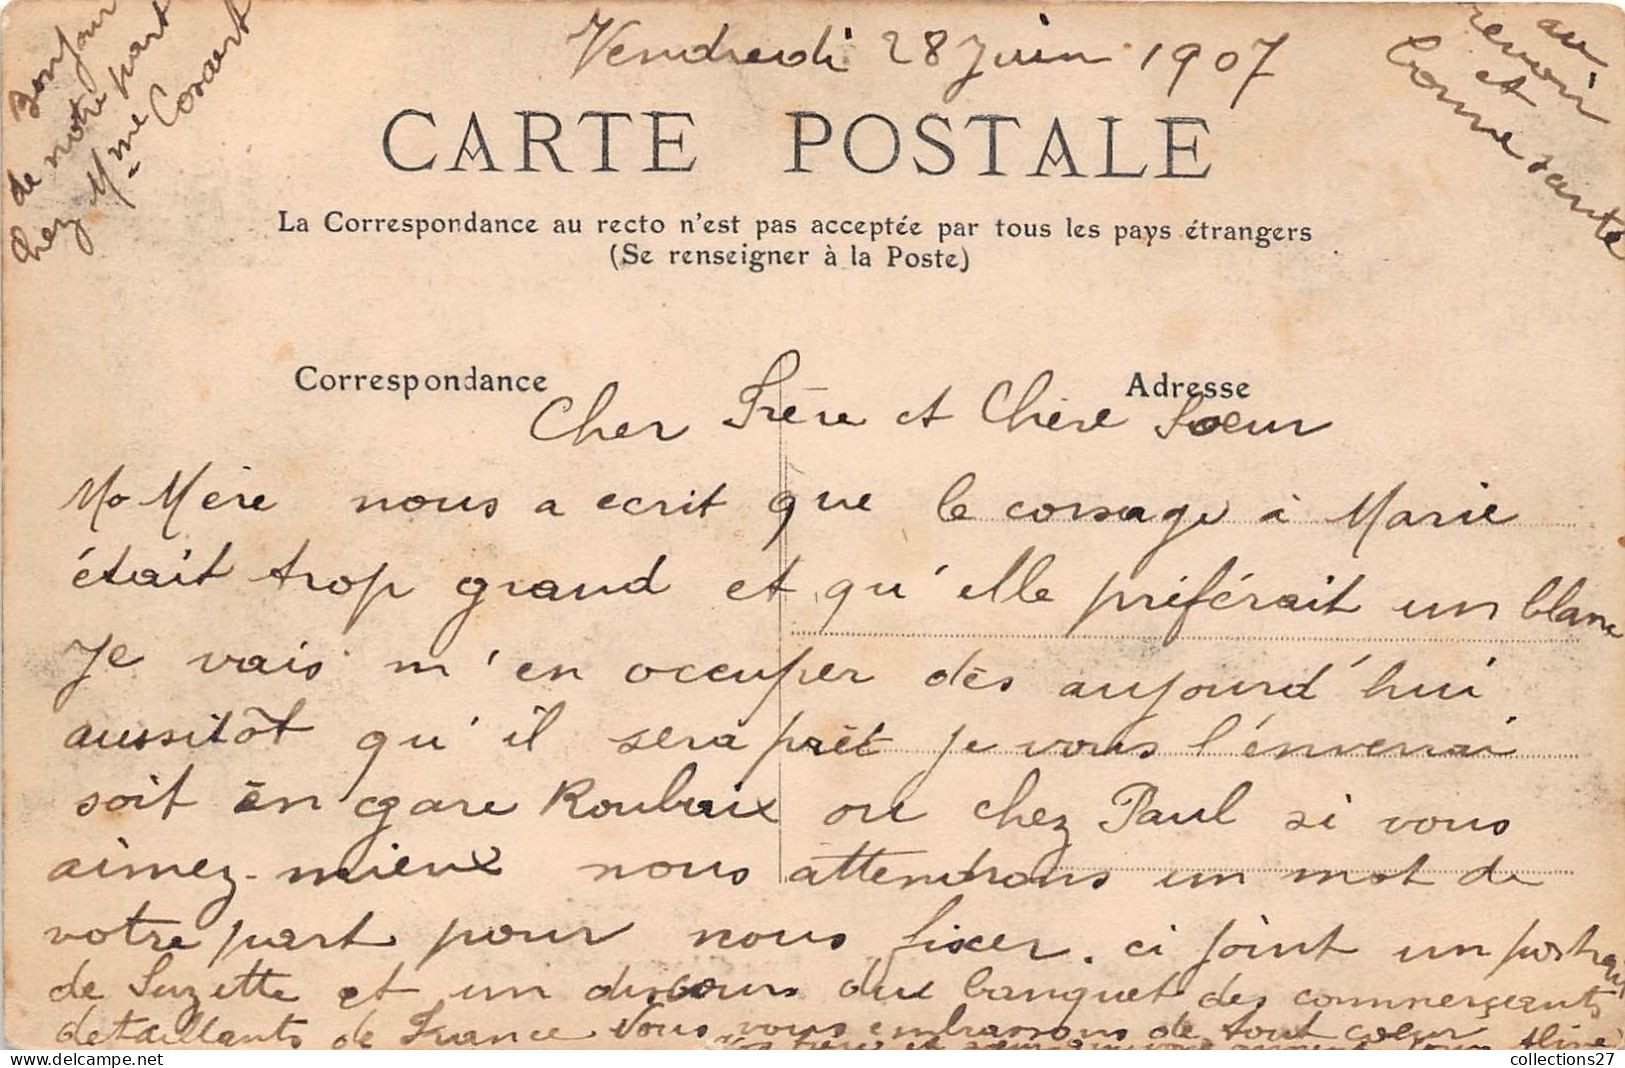 Bonjour
de notre part
chez Mme Cossart
Vendredi 28 Juin 1907
au
revoir
et
bonne santé
CARTE POSTALE
La Correspondance au recto n'est pas acceptée par tous les pays étrangers
(Se renseigner à la Poste)
Correspondance
Adresse
Cher Frère et Chère Soeur
Ma Mère nous a ecrit que le corsage à Marie
était trop grand et qu'elle préférait un blanc
Je vais m'en occuper dès aujourd'hui
aussitôt qu'il sera prêt je vous l'énverrai
soit en gare Roubaix ou chez Paul si vous
aimez-mieux nous attendrons un mot de
votre part pour nous fixer. ci joint un portrait
de Suzette et un discours du banquet des commerçeants
detaillants de France Nous vous embrassons de tout coeur
Vos frère et soeur qui vous aiment Aline
collections27